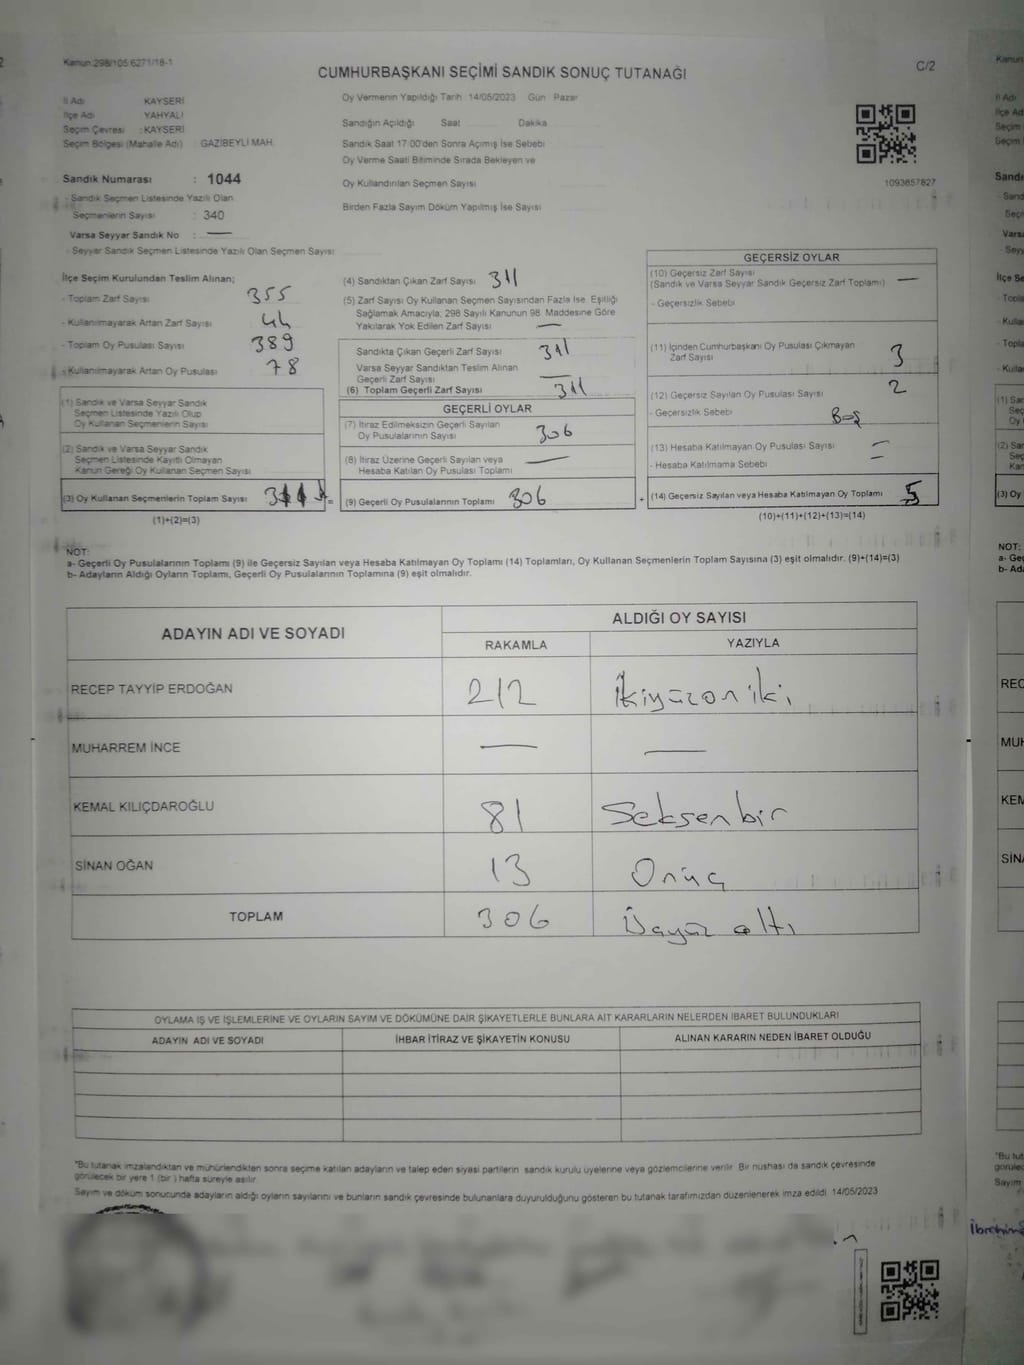 Kanun:298/105:6271/18-1
C/2
CUMHURBAŞKANI SEÇİMİ SANDIK SONUÇ TUTANAĞI
İl Adı KAYSERİ
İlçe Adı YAHYALI
Seçim Çevresi : KAYSERİ
Seçim Bölgesi (Mahalle Adı) GAZİBEYLİ MAH.
Sandık Numarası : 1044
- Sandık Seçmen Listesinde Yazılı Olan
Seçmenlerin Sayısı : 340
Varsa Seyyar Sandık No : —
- Seyyar Sandık Seçmen Listesinde Yazılı Olan Seçmen Sayısı
Oy Vermenin Yapıldığı Tarih : 14/05/2023 Gün : Pazar
Sandığın Açıldığı Saat Dakika
Sandık Saat 17:00'den Sonra Açımış İse Sebebi
Oy Verme Saati Bitiminde Sırada Bekleyen ve
Oy Kullandırılan Seçmen Sayısı
Birden Fazla Sayım Döküm Yapılmış İse Sayısı
1093657827
İlçe Seçim Kurulundan Teslim Alınan;
- Toplam Zarf Sayısı 355
- Kullanılmayarak Artan Zarf Sayısı 44
- Toplam Oy Pusulası Sayısı 389
- Kullanılmayarak Artan Oy Pusulası 78
(1) Sandık ve Varsa Seyyar Sandık
Seçmen Listesinde Yazılı Olup
Oy Kullanan Seçmenlerin Sayısı
(2) Sandık ve Varsa Seyyar Sandık
Seçmen Listesinde Kayıtlı Olmayan
Kanun Gereği Oy Kullanan Seçmen Sayısı
(3) Oy Kullanan Seçmenlerin Toplam Sayısı
(1)+(2)=(3)
(4) Sandıktan Çıkan Zarf Sayısı 311
(5) Zarf Sayısı Oy Kullanan Seçmen Sayısından Fazla İse, Eşitliği
Sağlamak Amacıyla, 298 Sayılı Kanunun 98. Maddesine Göre
Yakılarak Yok Edilen Zarf Sayısı —
Sandıkta Çıkan Geçerli Zarf Sayısı 311
Varsa Seyyar Sandıktan Teslim Alınan
Geçerli Zarf Sayısı —
(6) Toplam Geçerli Zarf Sayısı 311
GEÇERLİ OYLAR
(7) İtiraz Edilmeksizin Geçerli Sayılan
Oy Pusulalarının Sayısı 306
(8) İtiraz Üzerine Geçerli Sayılan veya
Hesaba Katılan Oy Pusulası Toplamı —
= (9) Geçerli Oy Pusulalarının Toplamı 306
GEÇERSİZ OYLAR
(10) Geçersiz Zarf Sayısı
(Sandık ve Varsa Seyyar Sandık Geçersiz Zarf Toplamı) —
- Geçersizlik Sebebi
(11) İçinden Cumhurbaşkanı Oy Pusulası Çıkmayan
Zarf Sayısı 3
(12) Geçersiz Sayılan Oy Pusulası Sayısı 2
- Geçersizlik Sebebi Boş
(13) Hesaba Katılmayan Oy Pusulası Sayısı —
- Hesaba Katılmama Sebebi —
+ (14) Geçersiz Sayılan veya Hesaba Katılmayan Oy Toplamı 5
(10)+(11)+(12)+(13)=(14)
NOT:
a- Geçerli Oy Pusulasının Toplamı (9) ile Geçersiz Sayılan veya Hesaba Katılmayan Oy Toplamı (14) Toplamları, Oy Kullanan Seçmenlerin Toplam Sayısına (3) eşit olmalıdır. (9)+(14)=(3)
b- Adayların Aldığı Oyların Toplamı, Geçerli Oy Pusulalarının Toplamına (9) eşit olmalıdır.
ADAYIN ADI VE SOYADI ALDIĞI OY SAYISI
RAKAMLA YAZIYLA
RECEP TAYYİP ERDOĞAN 212 İkiyüzoniki
MUHARREM İNCE — —
KEMAL KILIÇDAROĞLU 81 Seksenbir
SİNAN OĞAN 13 Onüç
TOPLAM 306 Üçyüz altı
OYLAMA İŞ VE İŞLEMLERİNE VE OYLARIN SAYIM VE DÖKÜMÜNE DAİR ŞİKAYETLERLE BUNLARA AİT KARARLARIN NELERDEN İBARET BULUNDUKLARI
ADAYIN ADI VE SOYADI İHBAR İTİRAZ VE ŞİKAYETİN KONUSU ALINAN KARARIN NEDEN İBARET OLDUĞU
*Bu tutanak imzalandıktan ve mühürlendikten sonra seçime katılan adayların ve talep eden siyasi partilerin sandık kurulu üyelerine veya gözlemcilerine verilir. Bir nüshası da sandık çevresinde
görülecek bir yere 1 (bir ) hafta süreyle asılır.
Sayım ve döküm sonucunda adayların aldığı oyların sayılarını ve bunların sandık çevresinde bulunanlara duyurulduğunu gösteren bu tutanak tarafımızdan düzenlenerek imza edildi. 14/05/2023